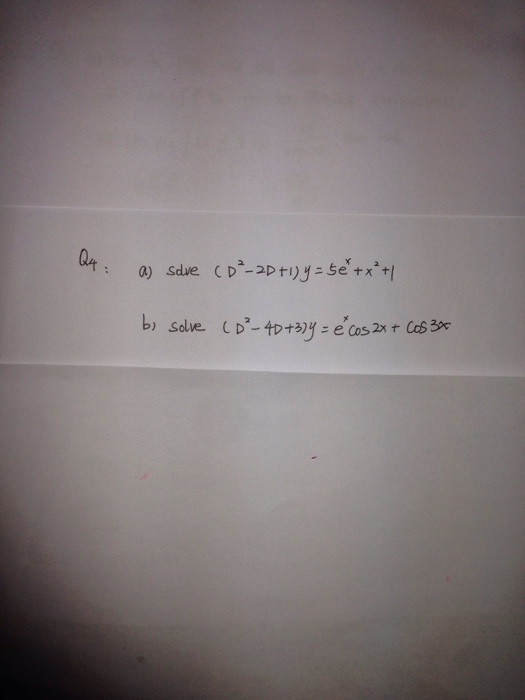 Q4: a) solve (D²-2D+1)y = 5eˣ+x²+1
b) solve (D²-4D+3)y = eˣcos2x + cos3x